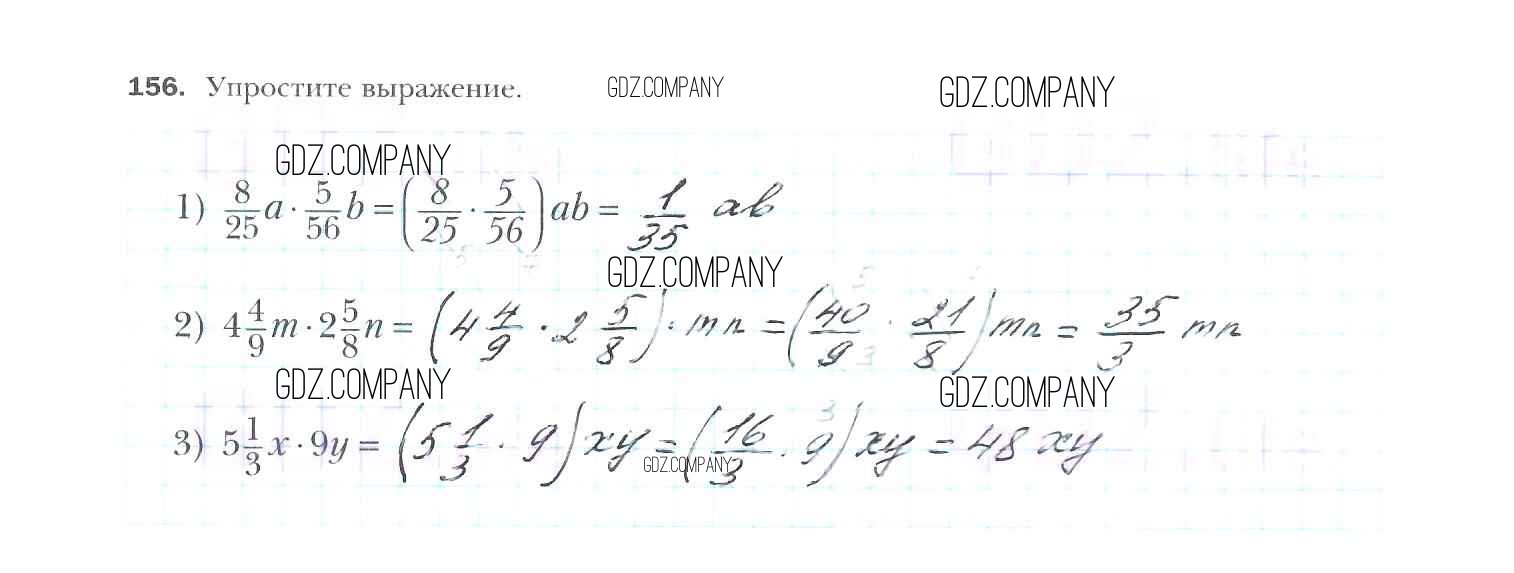 156. Упростите выражение. GDZ.COMPANY GDZ.COMPANY
GDZ.COMPANY
1) 8/25 a · 5/56 b = (8/25 · 5/56) ab = 1/35 ab
GDZ.COMPANY
2) 4 4/9 m · 2 5/8 n = (4 4/9 · 2 5/8) · mn = (40/9 · 21/8) mn = 35/3 mn
GDZ.COMPANY GDZ.COMPANY
3) 5 1/3 x · 9y = (5 1/3 · 9) xy = (16/3 · 9) xy = 48 xy
GDZ.COMPANY